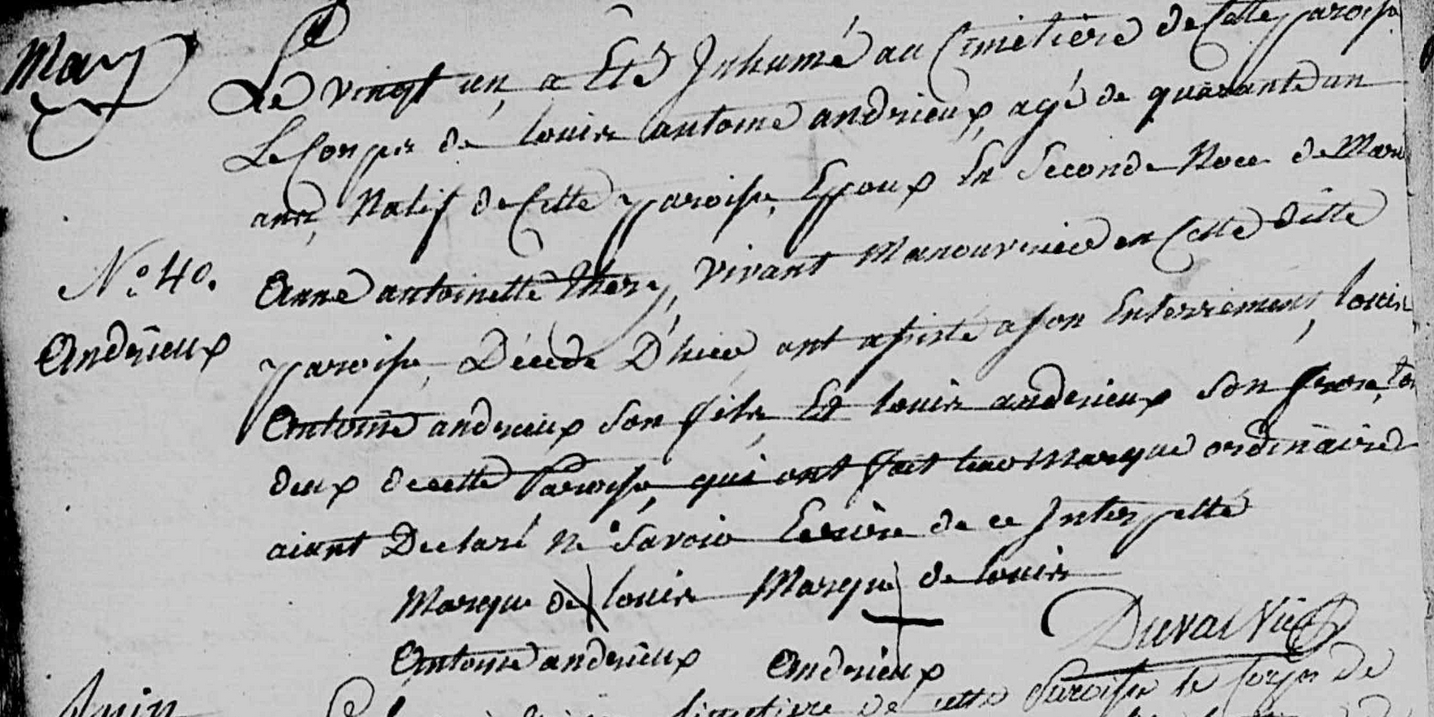 May
Le vingt un, a Eté Inhumé au Cimetiere de Cette paroisse
Le Corps de louis antoine andrieux, agé de quarante un
ans, Natif de Cette paroisse, Epoux En Seconde Noce de Marie
N.o 40.
Anne antoinette thery, vivant Manouvrier en Cette ditte
Andrieux
paroisse, Décédé D'hier, ont assisté a son Enterrement, louis
Antoine andrieux son fils, Et louis andrieux son frere, tous
deux de cette Paroisse, qui ont fait leur Marque ordinaire
aiant Declaré ne Savoir Ecrire de ce Interpellé
Marque de louis Marque de louis
Antoine andrieux Andrieux
Duval Vic
Juin
Cimetiere de cette Paroisse le Corps de